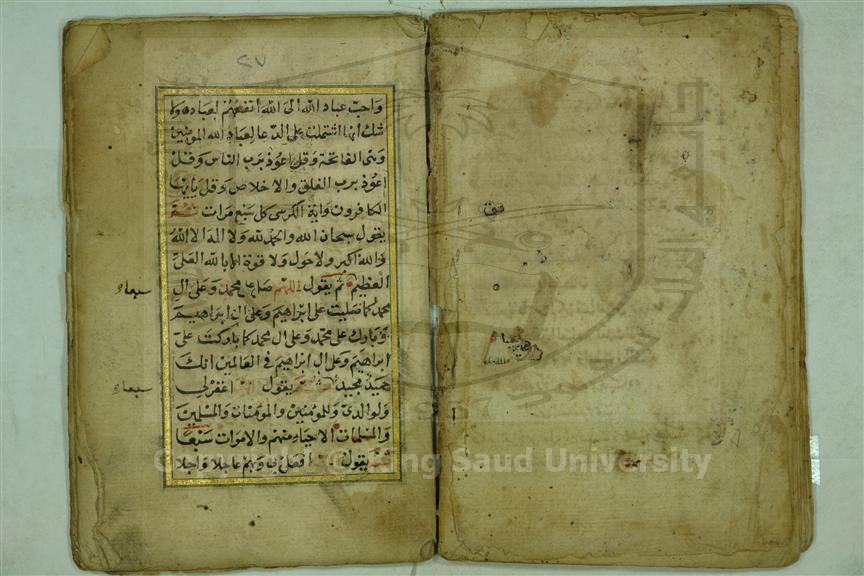 ٤٧
واحب عباد الله الى الله انفعهم لعباده ولا
شك انها اشتملت على الدعا لعباد الله المؤمنين
وهى الفاتحة وقل اعوذ برب الناس وقل
اعوذ برب الفلق والاخلاص وقل يا ايها
الكافرون واية الكرسى كل سبع مرات ثم
يقول سبحان الله والحمد لله ولا اله الا الله
والله اكبر ولا حول ولا قوة الا بالله العلى
العظيم ثم يقول اللهم صل على محمد وعلى ال
سبعا
محمد كما صليت على ابراهيم وعلى ال ابراهيم
وبارك على محمد وعلى ال محمد كما باركت على
ابراهيم وعلى ال ابراهيم فى العالمين انك
حميد مجيد ثم يقول اغفر لى
سبعا
ولوالدى وللمؤمنين والمؤمنات والمسلمين
والمسلمات الاحياء منهم والاموات سبعا
ثم يقول افعل بى وبهم عاجلا واجلا
Copyright © King Saud University